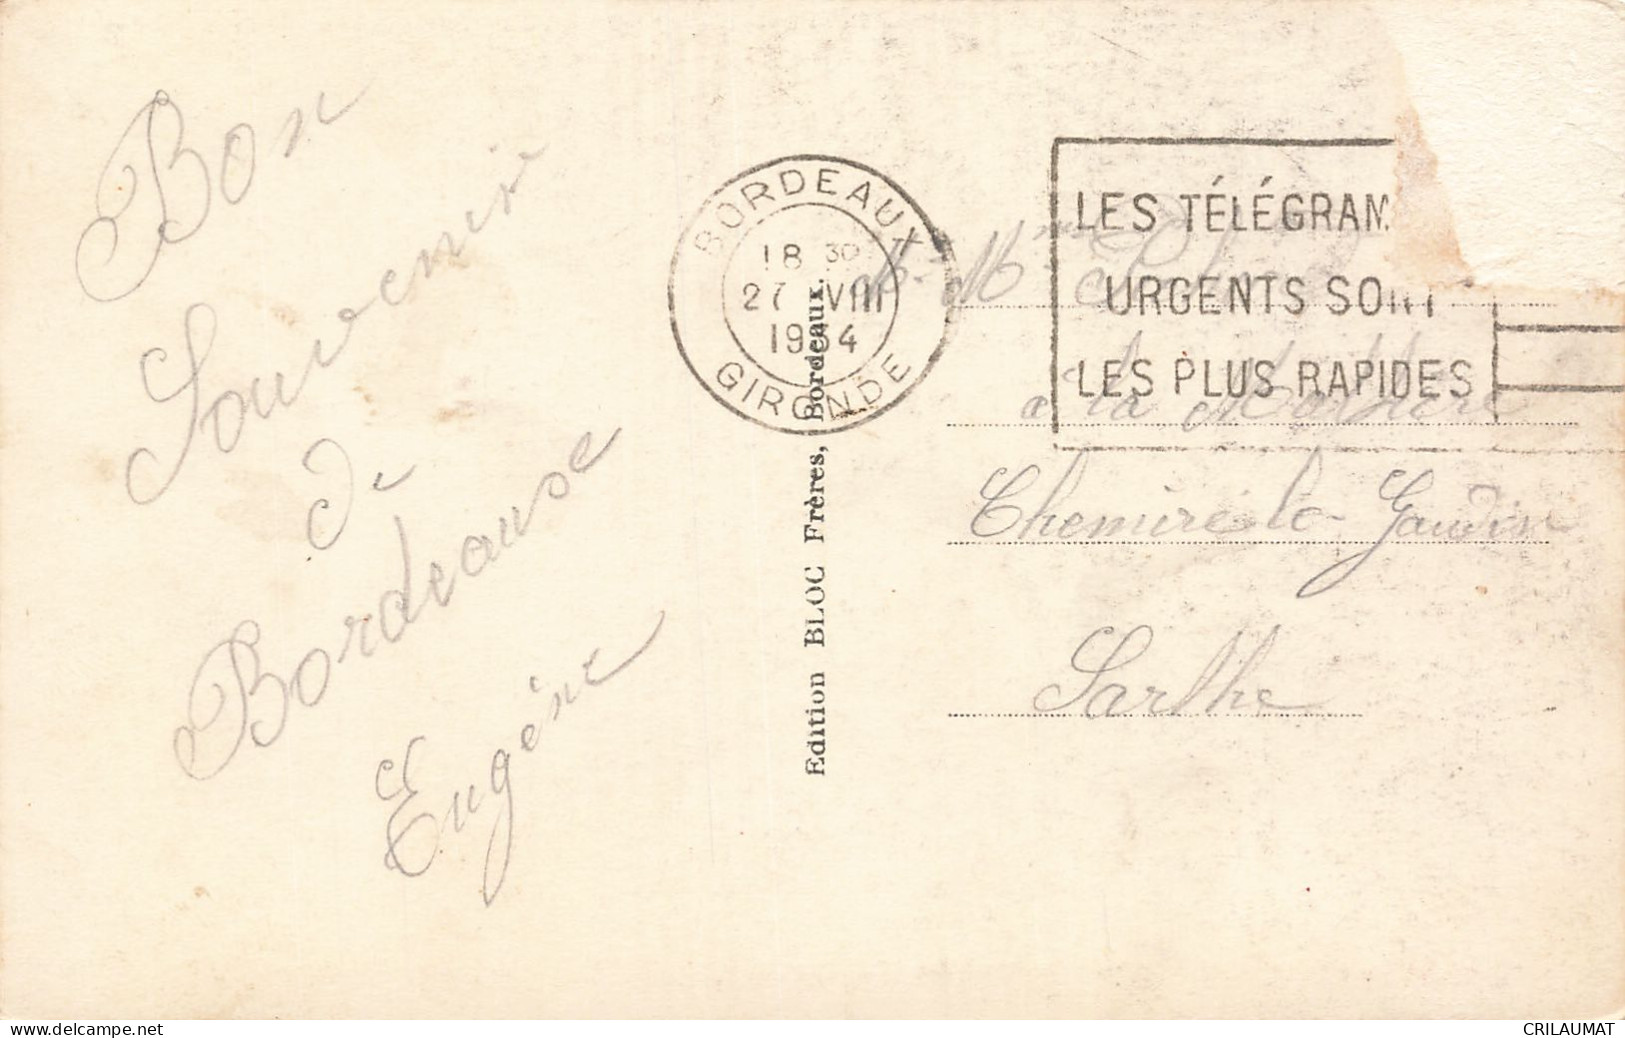 Bon
Souvenir
de
Bordeause
Eugène
BORDEAUX
18 30
27 VIII
1934
GIRONDE
Edition BLOC Frères, Bordeaux.
LES TÉLÉGRAM
URGENTS SONT
LES PLUS RAPIDES
M. Mme
a la
Chemiré le Gaudin
Sarthe
www.delcampe.net
CRILAUMAT